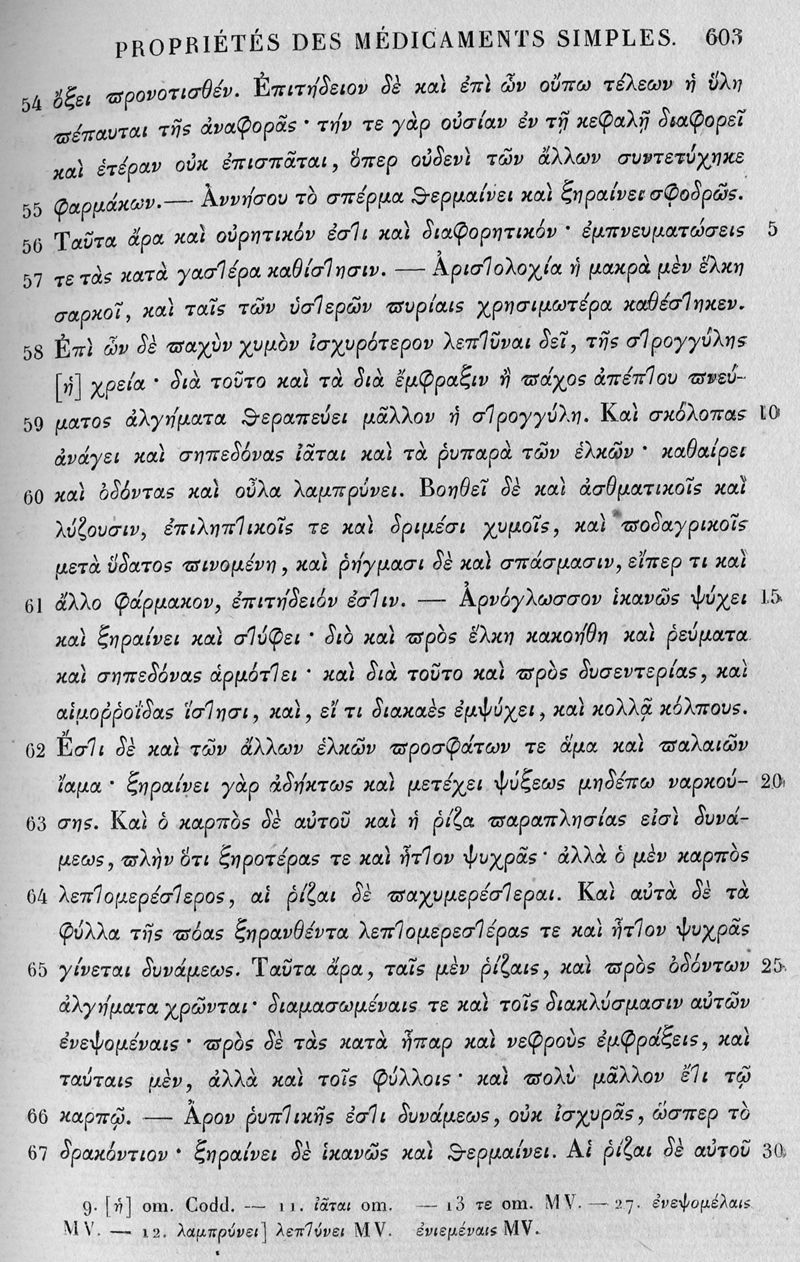 PROPRIÉTÉS DES MÉDICAMENTS SIMPLES. 603
54 ὄξει προνοτισθέν. Ἐπιτήδειον δὲ καὶ ἐπὶ ὧν οὔπω τέλεων ἡ ὕλη
πέπαυται τῆς ἀναφορᾶς · τήν τε γὰρ οὐσίαν ἐν τῇ κεφαλῇ διαφορεῖ
καὶ ἑτέραν οὐκ ἐπισπᾶται, ὅπερ οὐδενὶ τῶν ἄλλων συντετύχηκε
55 φαρμάκων. — Ἀννήσου τὸ σπέρμα θερμαίνει καὶ ξηραίνει σφοδρῶς.
56 Ταῦτα ἄρα καὶ οὐρητικόν ἐστι καὶ διαφορητικόν · ἐμπνευματώσεις 5
57 τε τὰς κατὰ γαστέρα καθίστησιν. — Ἀριστολοχία ἡ μακρὰ μὲν ἕλκη
σαρκοῖ, καὶ ταῖς τῶν ὑστερῶν πυρίαις χρησιμωτέρα καθέστηκεν.
58 Ἐπὶ ὧν δὲ παχὺν χυμὸν ἰσχυρότερον λεπτῦναι δεῖ, τῆς στρογγύλης
[ἡ] χρεία · διὰ τοῦτο καὶ τὰ διὰ ἔμφραξιν ἢ πάχος ἀπέπτου πνεύ-
59 ματος ἀλγήματα θεραπεύει μᾶλλον ἡ στρογγύλη. Καὶ σκόλοπας 10
ἀνάγει καὶ σηπεδόνας ἰᾶται καὶ τὰ ῥυπαρὰ τῶν ἑλκῶν · καθαίρει
60 καὶ ὀδόντας καὶ οὖλα λαμπρύνει. Βοηθεῖ δὲ καὶ ἀσθματικοῖς καὶ
λύζουσιν, ἐπιληπτικοῖς τε καὶ δριμέσι χυμοῖς, καὶ ποδαγρικοῖς
μετὰ ὕδατος πινομένη, καὶ ῥήγμασι δὲ καὶ σπάσμασιν, εἴπερ τι καὶ
61 ἄλλο φάρμακον, ἐπιτήδειόν ἐστιν. — Ἀρνόγλωσσον ἱκανῶς ψύχει 15
καὶ ξηραίνει καὶ στύφει · διὸ καὶ πρὸς ἕλκη κακοήθη καὶ ῥεύματα
καὶ σηπεδόνας ἁρμόττει · καὶ διὰ τοῦτο καὶ πρὸς δυσεντερίας, καὶ
αἱμοῤῥοΐδας ἵστησι, καὶ, εἴ τι διακαὲς ἐμψύχει, καὶ κολλᾷ κόλπους.
62 Ἔστι δὲ καὶ τῶν ἄλλων ἑλκῶν προσφάτων τε ἅμα καὶ παλαιῶν
ἴαμα · ξηραίνει γὰρ ἀδήκτως καὶ μετέχει ψύξεως μηδέπω ναρκού- 20
63 σης. Καὶ ὁ καρπὸς δὲ αὐτοῦ καὶ ἡ ῥίζα παραπλησίας εἰσὶ δυνά-
μεως, πλὴν ὅτι ξηροτέρας τε καὶ ἧττον ψυχρᾶς · ἀλλὰ ὁ μὲν καρπὸς
64 λεπτομερέστερος, αἱ ῥίζαι δὲ παχυμερέστεραι. Καὶ αὐτὰ δὲ τὰ
φύλλα τῆς πόας ξηρανθέντα λεπτομερεστέρας τε καὶ ἧττον ψυχρᾶς
65 γίνεται δυνάμεως. Ταῦτα ἄρα, ταῖς μὲν ῥίζαις, καὶ πρὸς ὀδόντων 25
ἀλγήματα χρῶνται · διαμασωμέναις τε καὶ τοῖς διακλύσμασιν αὐτῶν
ἐνεψομέναις · πρὸς δὲ τὰς κατὰ ἧπαρ καὶ νεφροὺς ἐμφράξεις, καὶ
ταύταις μὲν, ἀλλὰ καὶ τοῖς φύλλοις · καὶ πολὺ μᾶλλον ἔτι τῷ
66 καρπῷ. — Ἄρον ῥυπτικῆς ἐστι δυνάμεως, οὐκ ἰσχυρᾶς, ὥσπερ τὸ
67 δρακόντιον · ξηραίνει δὲ ἱκανῶς καὶ θερμαίνει. Αἱ ῥίζαι δὲ αὐτοῦ 30
9. [ἡ] om. Codd. — 11. ἰᾶται om. — 13 τε om. MV. — 27. ἐνεψομέλαις
MV. — 12. λαμπρύνει] λεπτύνει MV. ἐνιεμέναις MV.